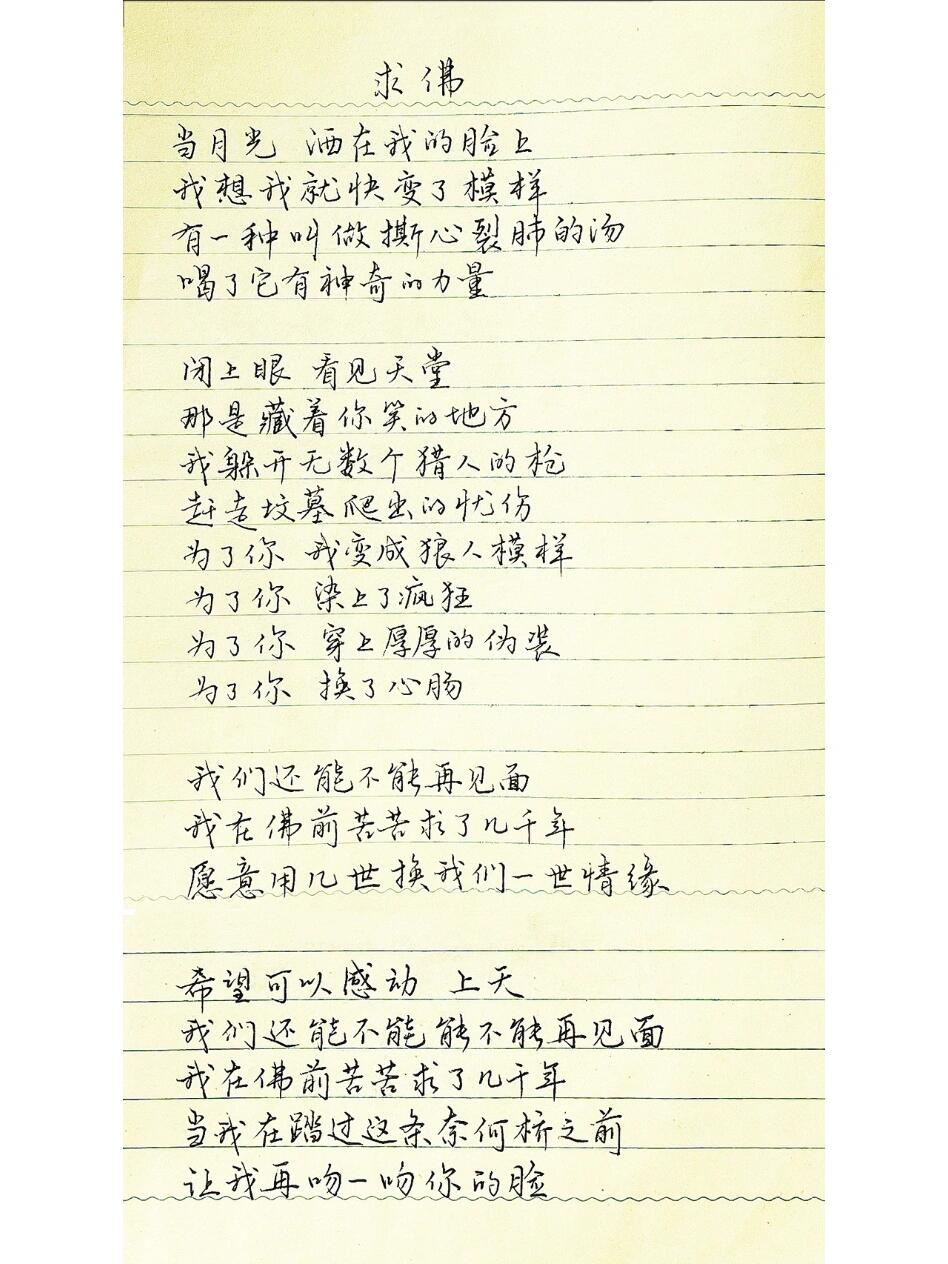 求佛
当月光 洒在我的脸上
我想我就快变了模样
有一种叫做撕心裂肺的汤
喝了它有神奇的力量
闭上眼 看见天堂
那是藏着你笑的地方
我躲开无数个猎人的枪
赶走坟墓爬出的忧伤
为了你 我变成狼人模样
为了你 染上了疯狂
为了你 穿上厚厚的伪装
为了你 换了心肠
我们还能不能再见面
我在佛前苦苦求了几千年
愿意用几世换我们一世情缘
希望可以感动 上天
我们还能不能能不能再见面
我在佛前苦苦求了几千年
当我在踏过这条奈何桥之前
让我再吻一吻你的脸